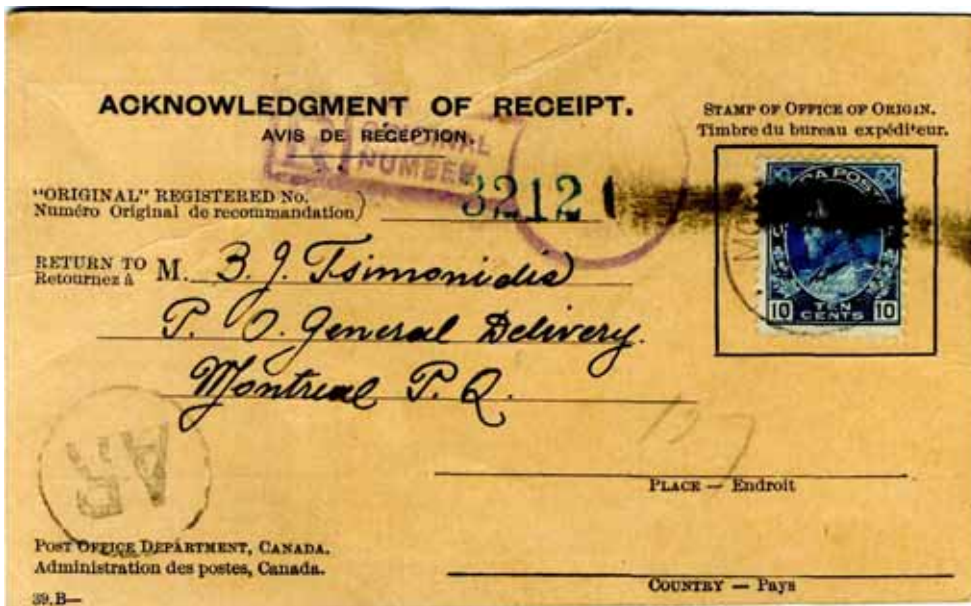 ACKNOWLEDGMENT OF RECEIPT.
AVIS DE RÉCEPTION.
STAMP OF OFFICE OF ORIGIN.
Timbre du bureau expéditeur.
ORIGINAL
NUMBER
"ORIGINAL" REGISTERED No.
Numéro Original de recommandation)
82121
RETURN TO
Retournez à
M. B. J. Tsimonidis
P. O. General Delivery.
Montreal P. Q.
A POST
TEN
CENTS
10 10
MO
AR
PLACE — Endroit
POST OFFICE DEPARTMENT, CANADA.
Administration des postes, Canada.
COUNTRY — Pays
39.B—